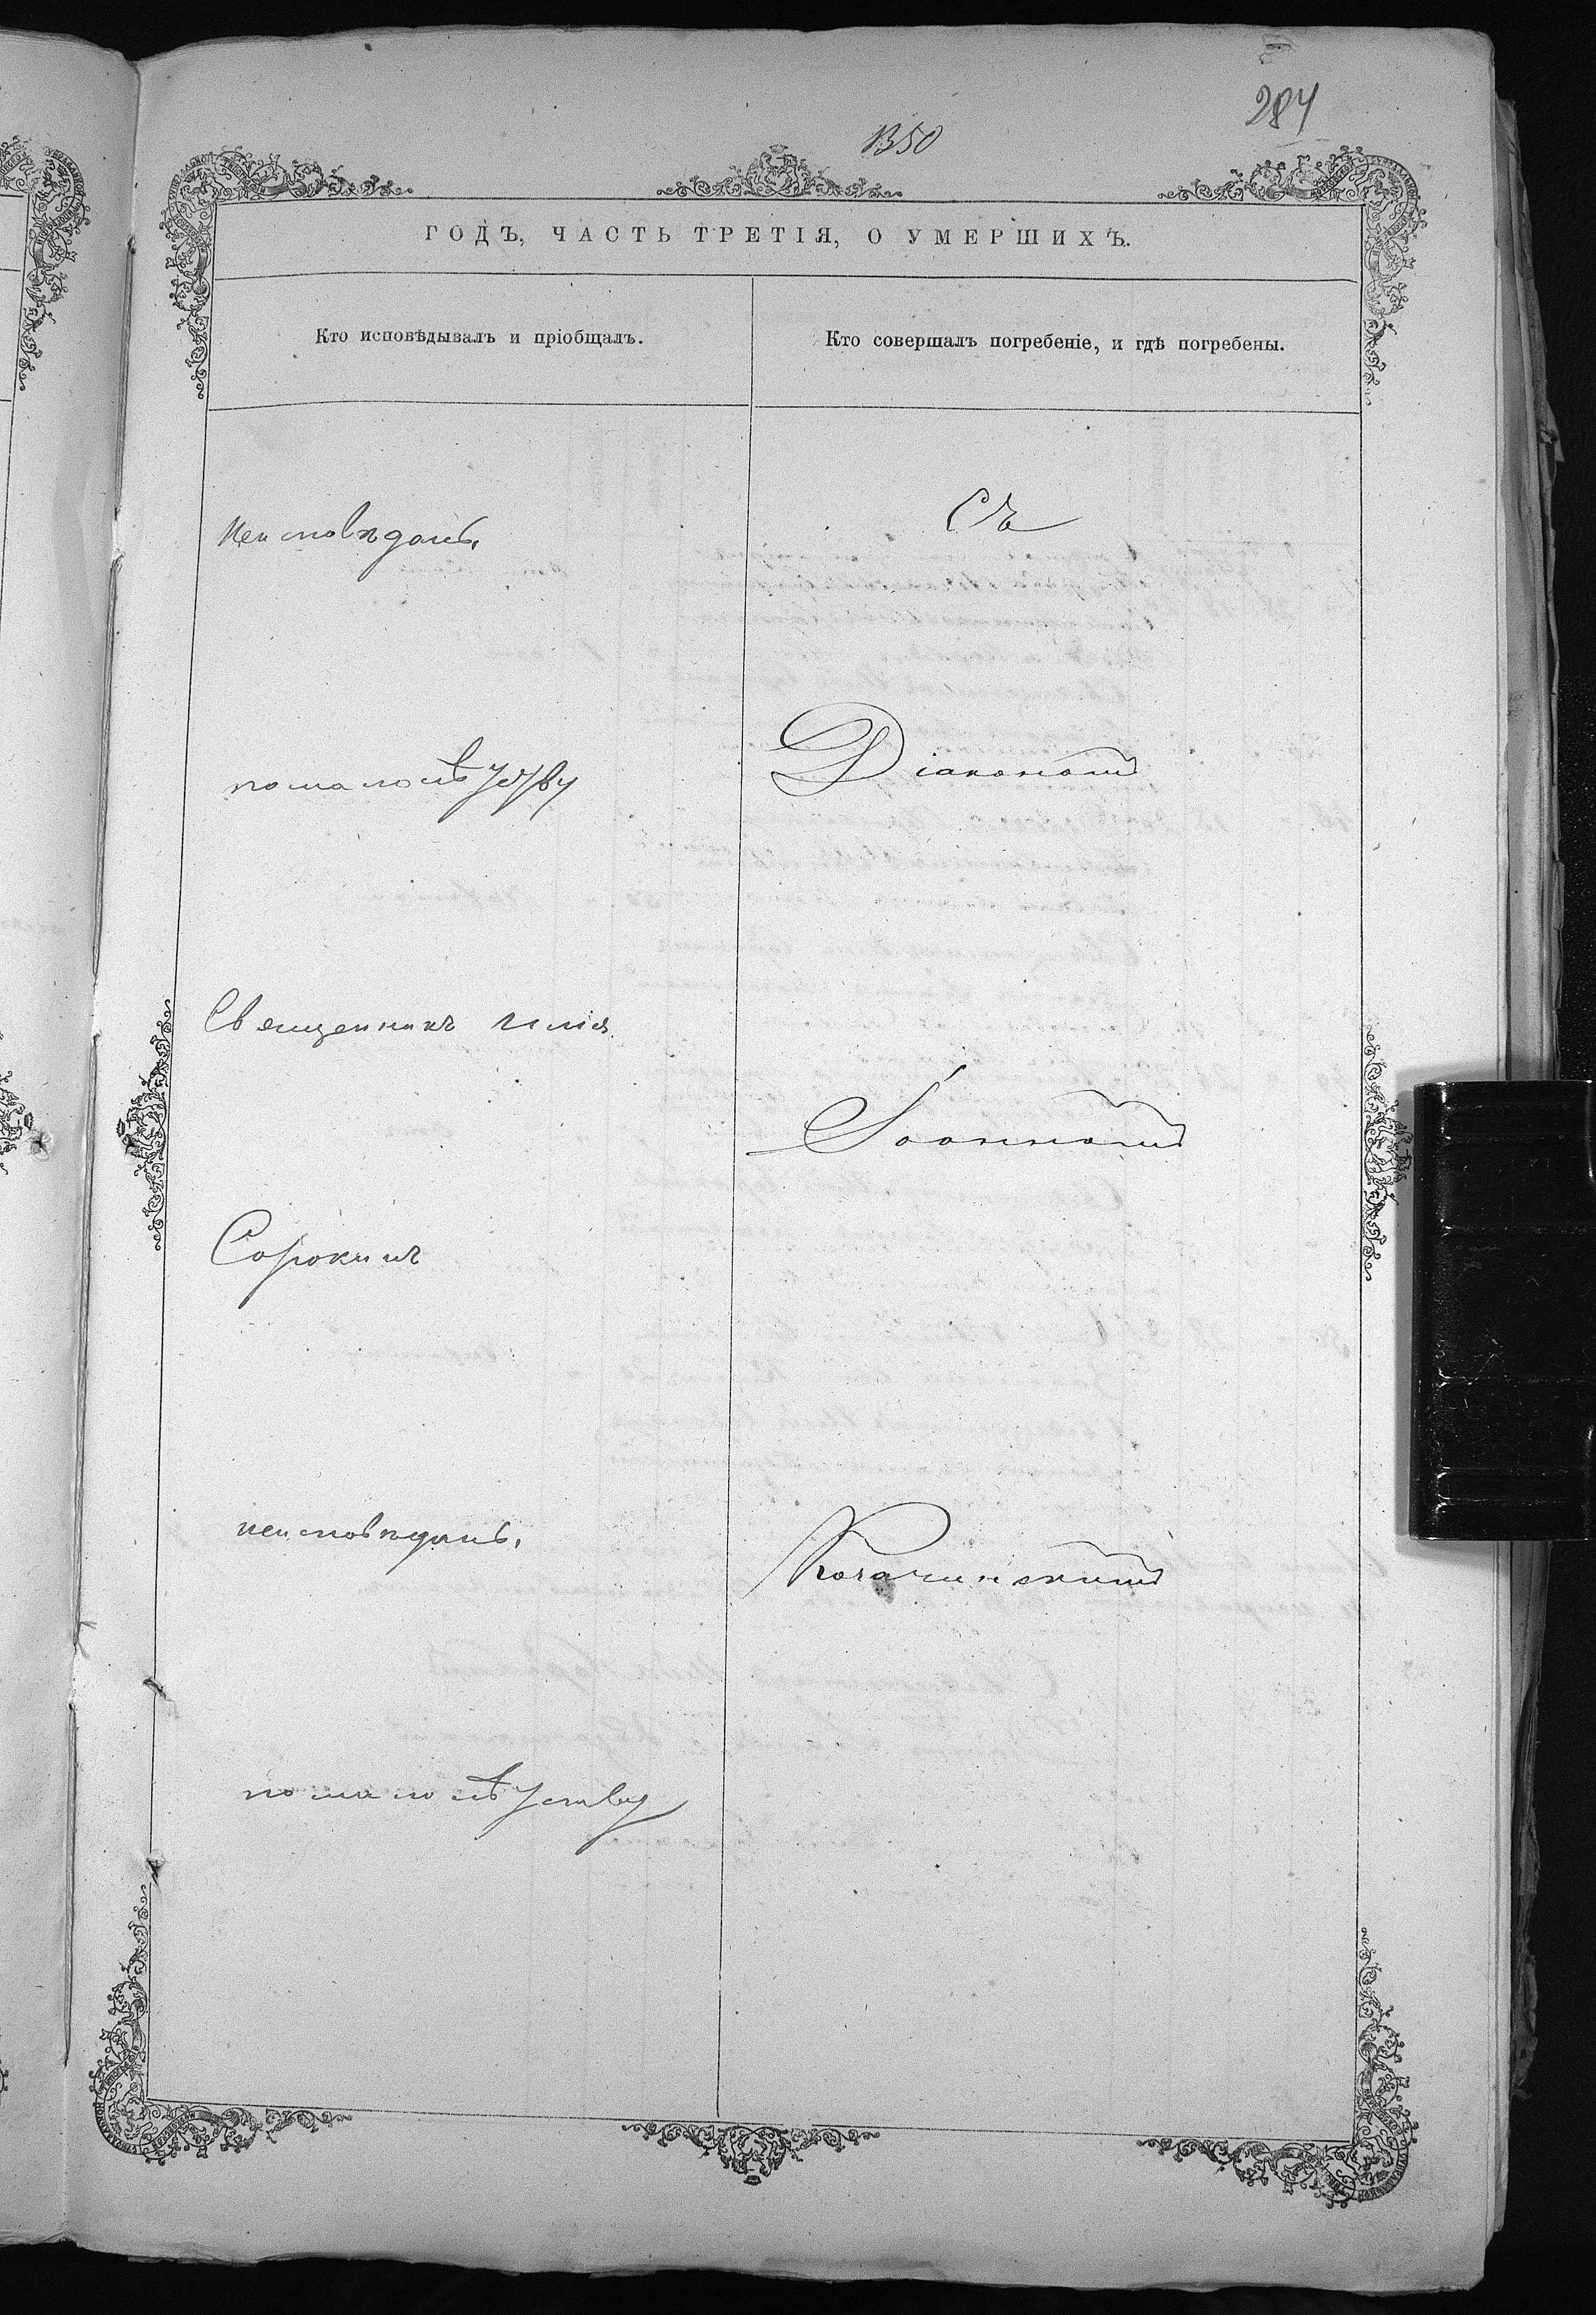 284
1350
ГОДЪ, ЧАСТЬ ТРЕТІЯ, О УМЕРШИХЪ.
Кто исповѣдывалъ и пріобщалъ.
Кто совершалъ погребеніе, и гдѣ погребены.
Неисповѣданъ,
по малолѣтству
Священникъ Илія
Сорокинъ
неисповѣданъ,
по малолѣтству
Съ
Діакономъ
Іоанномъ